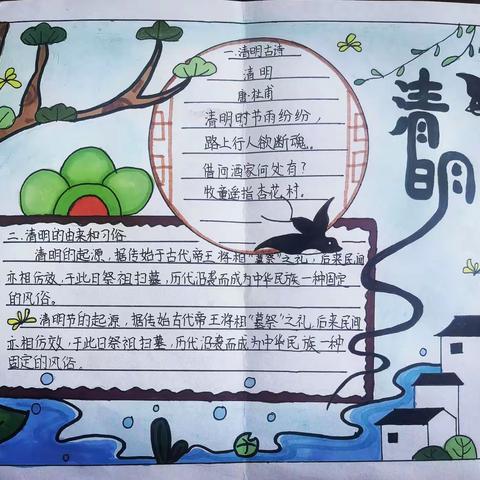 清明
一.清明古诗
清明
唐·杜甫
清明时节雨纷纷，
路上行人欲断魂。
借问酒家何处有？
牧童遥指杏花村。
二.清明的由来和习俗
清明的起源，据传始于古代帝王将相"墓祭"之礼，后来民间
亦相仿效，于此日祭祖扫墓，历代沿袭而成为中华民族一种固定
的风俗。
清明节的起源，据传始古代帝王将相"墓祭"之礼，后来民间
亦相仿效，于此日祭祖扫墓，历代沿袭而成为中华民族一种
固定的风俗。